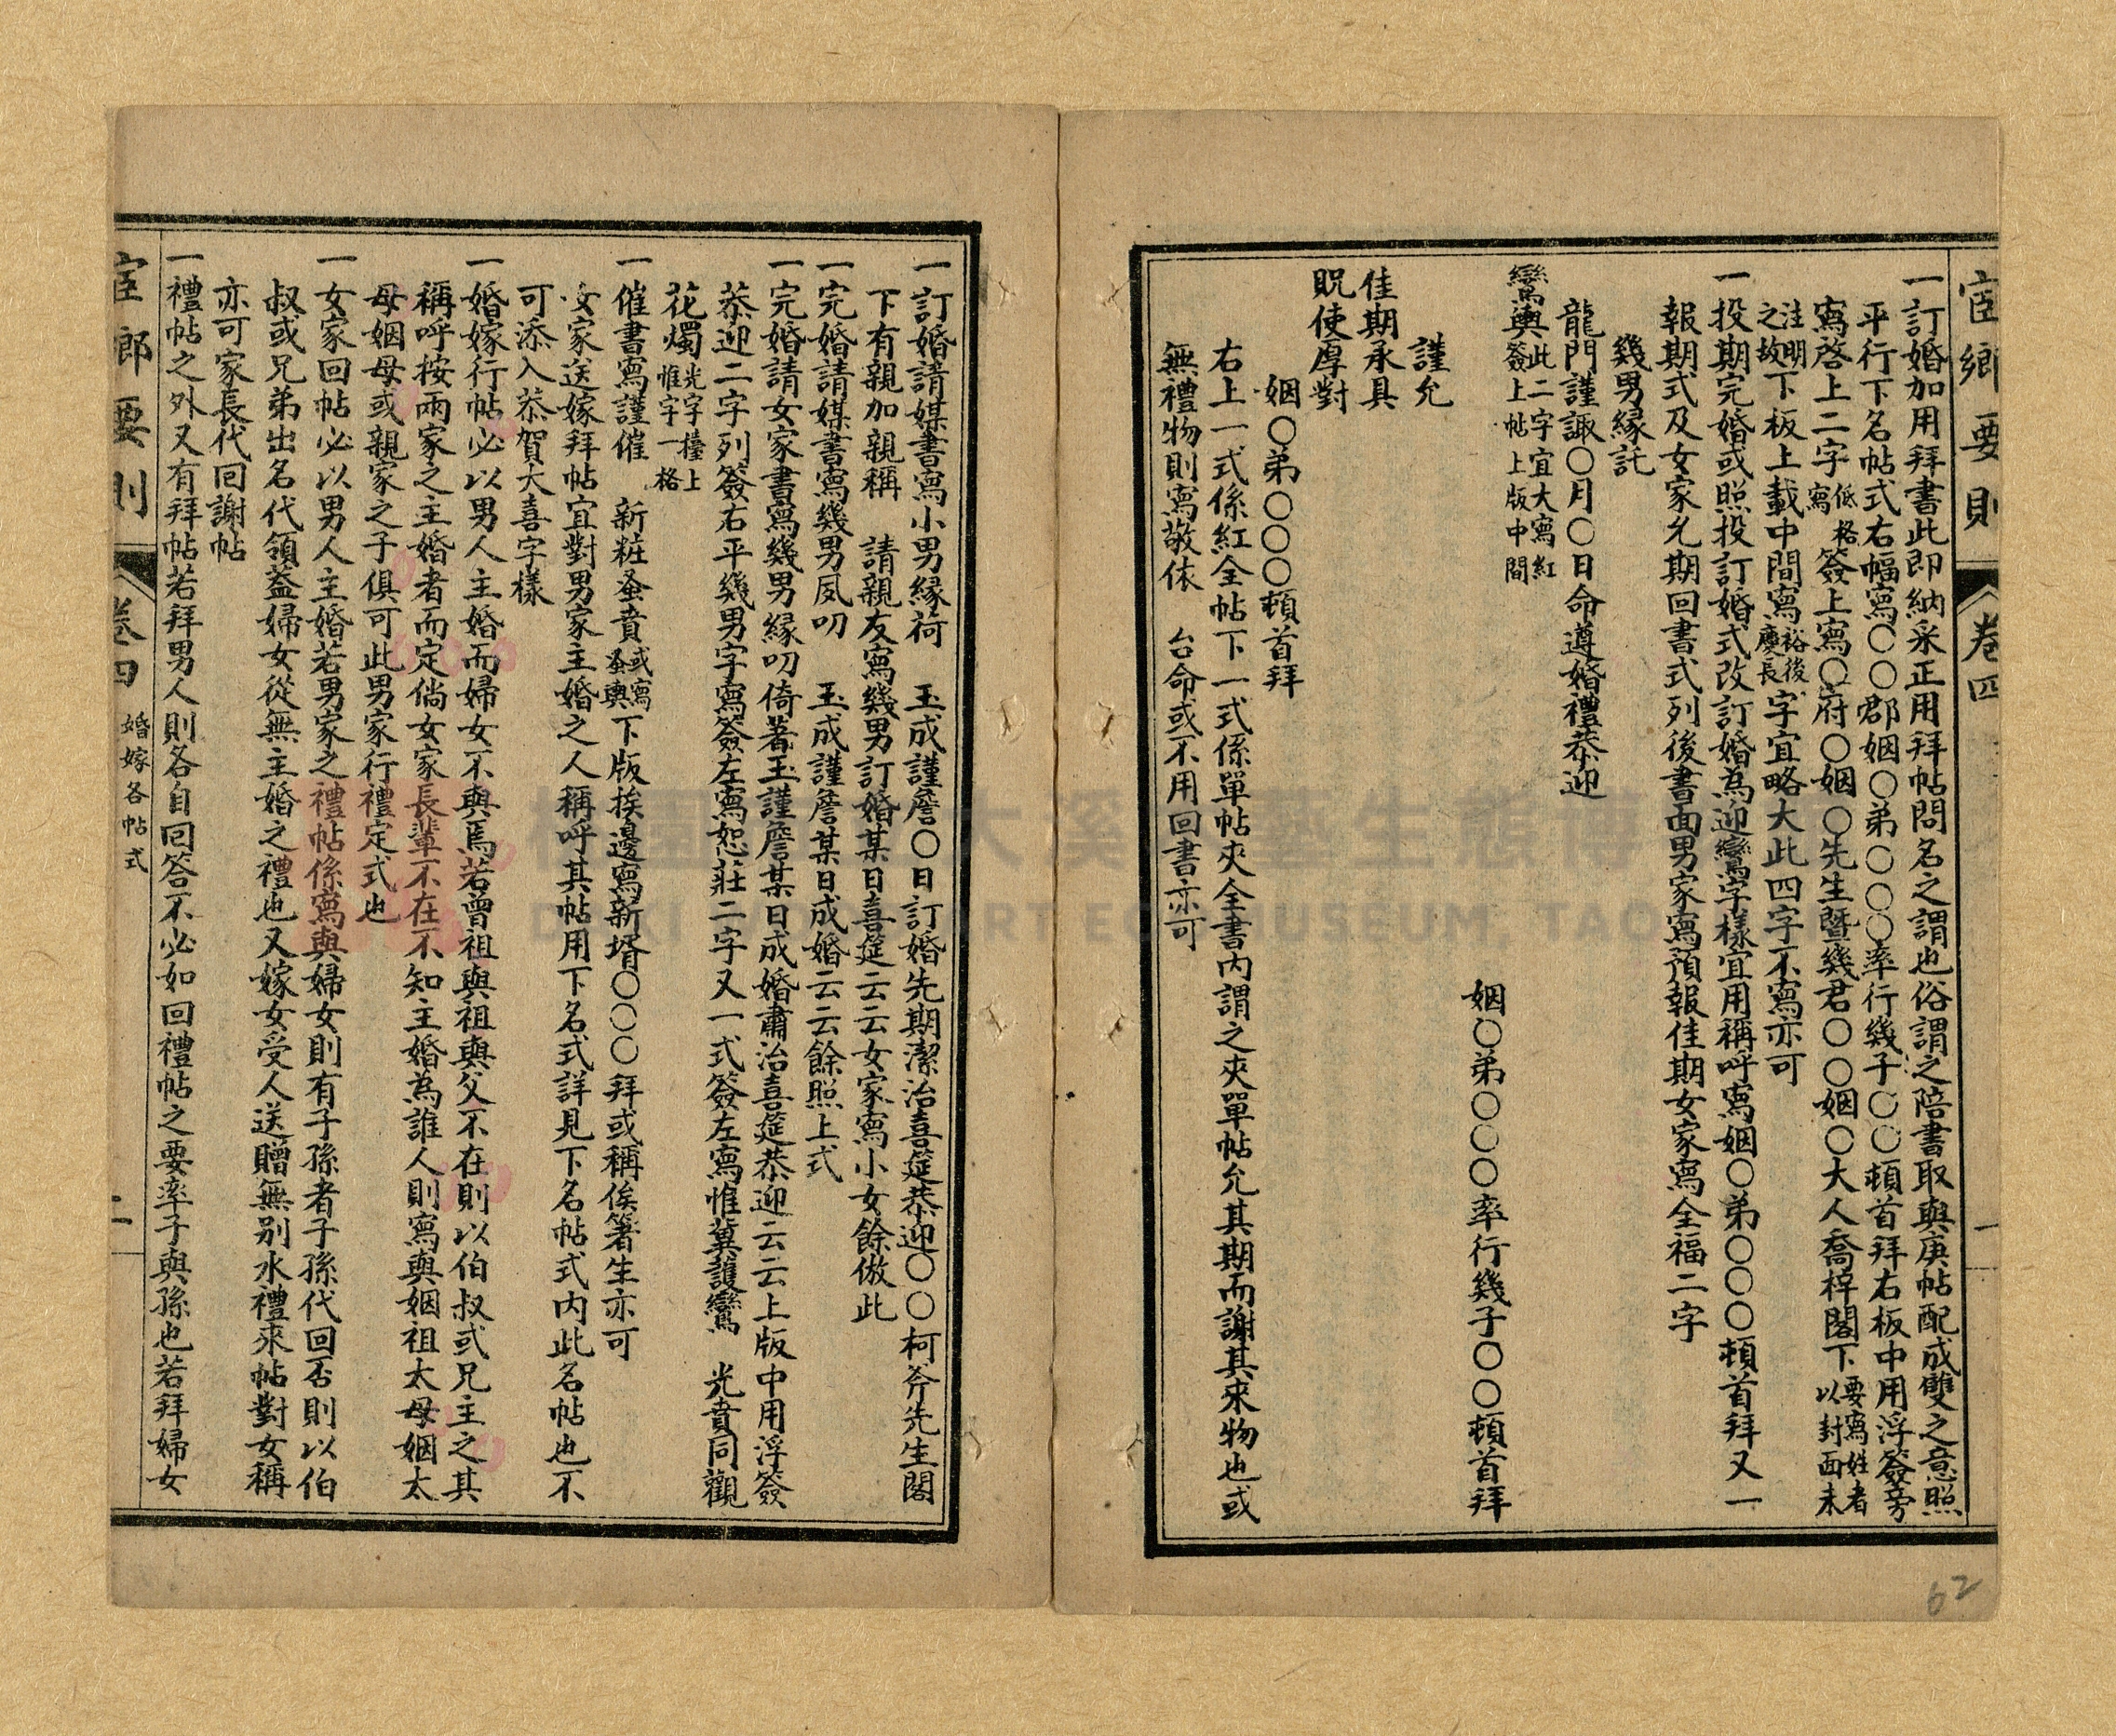 宦鄉要則 卷四 一
一訂婚加用拜書此即納采正用拜帖問名之謂也俗謂之陪書取與庚帖配成雙之意照
平行下名帖式右幅寫〇〇郡姻〇弟〇〇〇率行幾子〇〇頓首拜右板中用浮簽旁
寫啓上二字低格寫簽上寫〇府〇姻〇先生暨幾君〇〇姻〇大人喬梓閣下要寫姓者以封面未
注明之故下板上載中間寫裕後慶長字宜略大此四字不寫亦可
一投期完婚或照投訂婚式改訂婚為迎鸞字樣宜用稱呼寫姻〇弟〇〇〇頓首拜又一
報期式及女家允期回書式列後書面男家寫預報佳期女家寫全福二字
幾男緣託
龍門謹諏〇月〇日命遵婚禮恭迎
鸞輿此二字宜大寫紅簽上帖上版中間
姻〇弟〇〇〇率行幾子〇〇頓首拜
謹允
佳期承具
貺使厚對
姻〇弟〇〇〇頓首拜
右上一式係紅全帖下一式係單帖夾全書內謂之夾單帖允其期而謝其來物也或
無禮物則寫敬依 台命或不用回書亦可
一訂婚請媒書寫小男緣荷 玉成謹詹〇日訂婚先期潔治喜筵恭迎〇〇柯斧先生閣
下有親加親稱 請親友寫幾男訂婚某日喜筵云云女家寫小女餘倣此
一完婚請媒書寫幾男夙叨 玉成謹詹某日成婚云云餘照上式
一完婚請女家書寫幾男緣叨倚著玉謹詹某日成婚肅治喜筵恭迎云云上版中用浮簽
恭迎二字列簽右平幾男字寫簽左寫恕莊二字又一式簽左寫惟冀護鸞 光賁同觀
花燭光字擡上惟字一格
一催書寫謹催 新粧蚤賁或寫蚤輿下版挨邊寫新壻〇〇〇拜或稱俟箸生亦可
女家送嫁拜帖宜對男家主婚之人稱呼其帖用下名式詳見下名帖式內此名帖也不
可添入恭賀大喜字樣
一婚嫁行帖必以男人主婚而婦女不與焉若曾祖與祖與父不在則以伯叔或兄主之其
稱呼按兩家之主婚者而定倘女家長輩不在不知主婚為誰人則寫與姻祖太母姻太
母姻母或親家之子俱可此男家行禮定式也
一女家回帖必以男人主婚若男家之禮帖係寫與婦女則有子孫者子孫代回否則以伯
叔或兄弟出名代領蓋婦女從無主婚之禮也又嫁女受人送贈無別水禮來帖對女稱
亦可家長代回謝帖
一禮帖之外又有拜帖若拜男人則各自回答不必如回禮帖之要率子與孫也若拜婦女
宦鄉要則 卷四 婚嫁各帖式 二
62